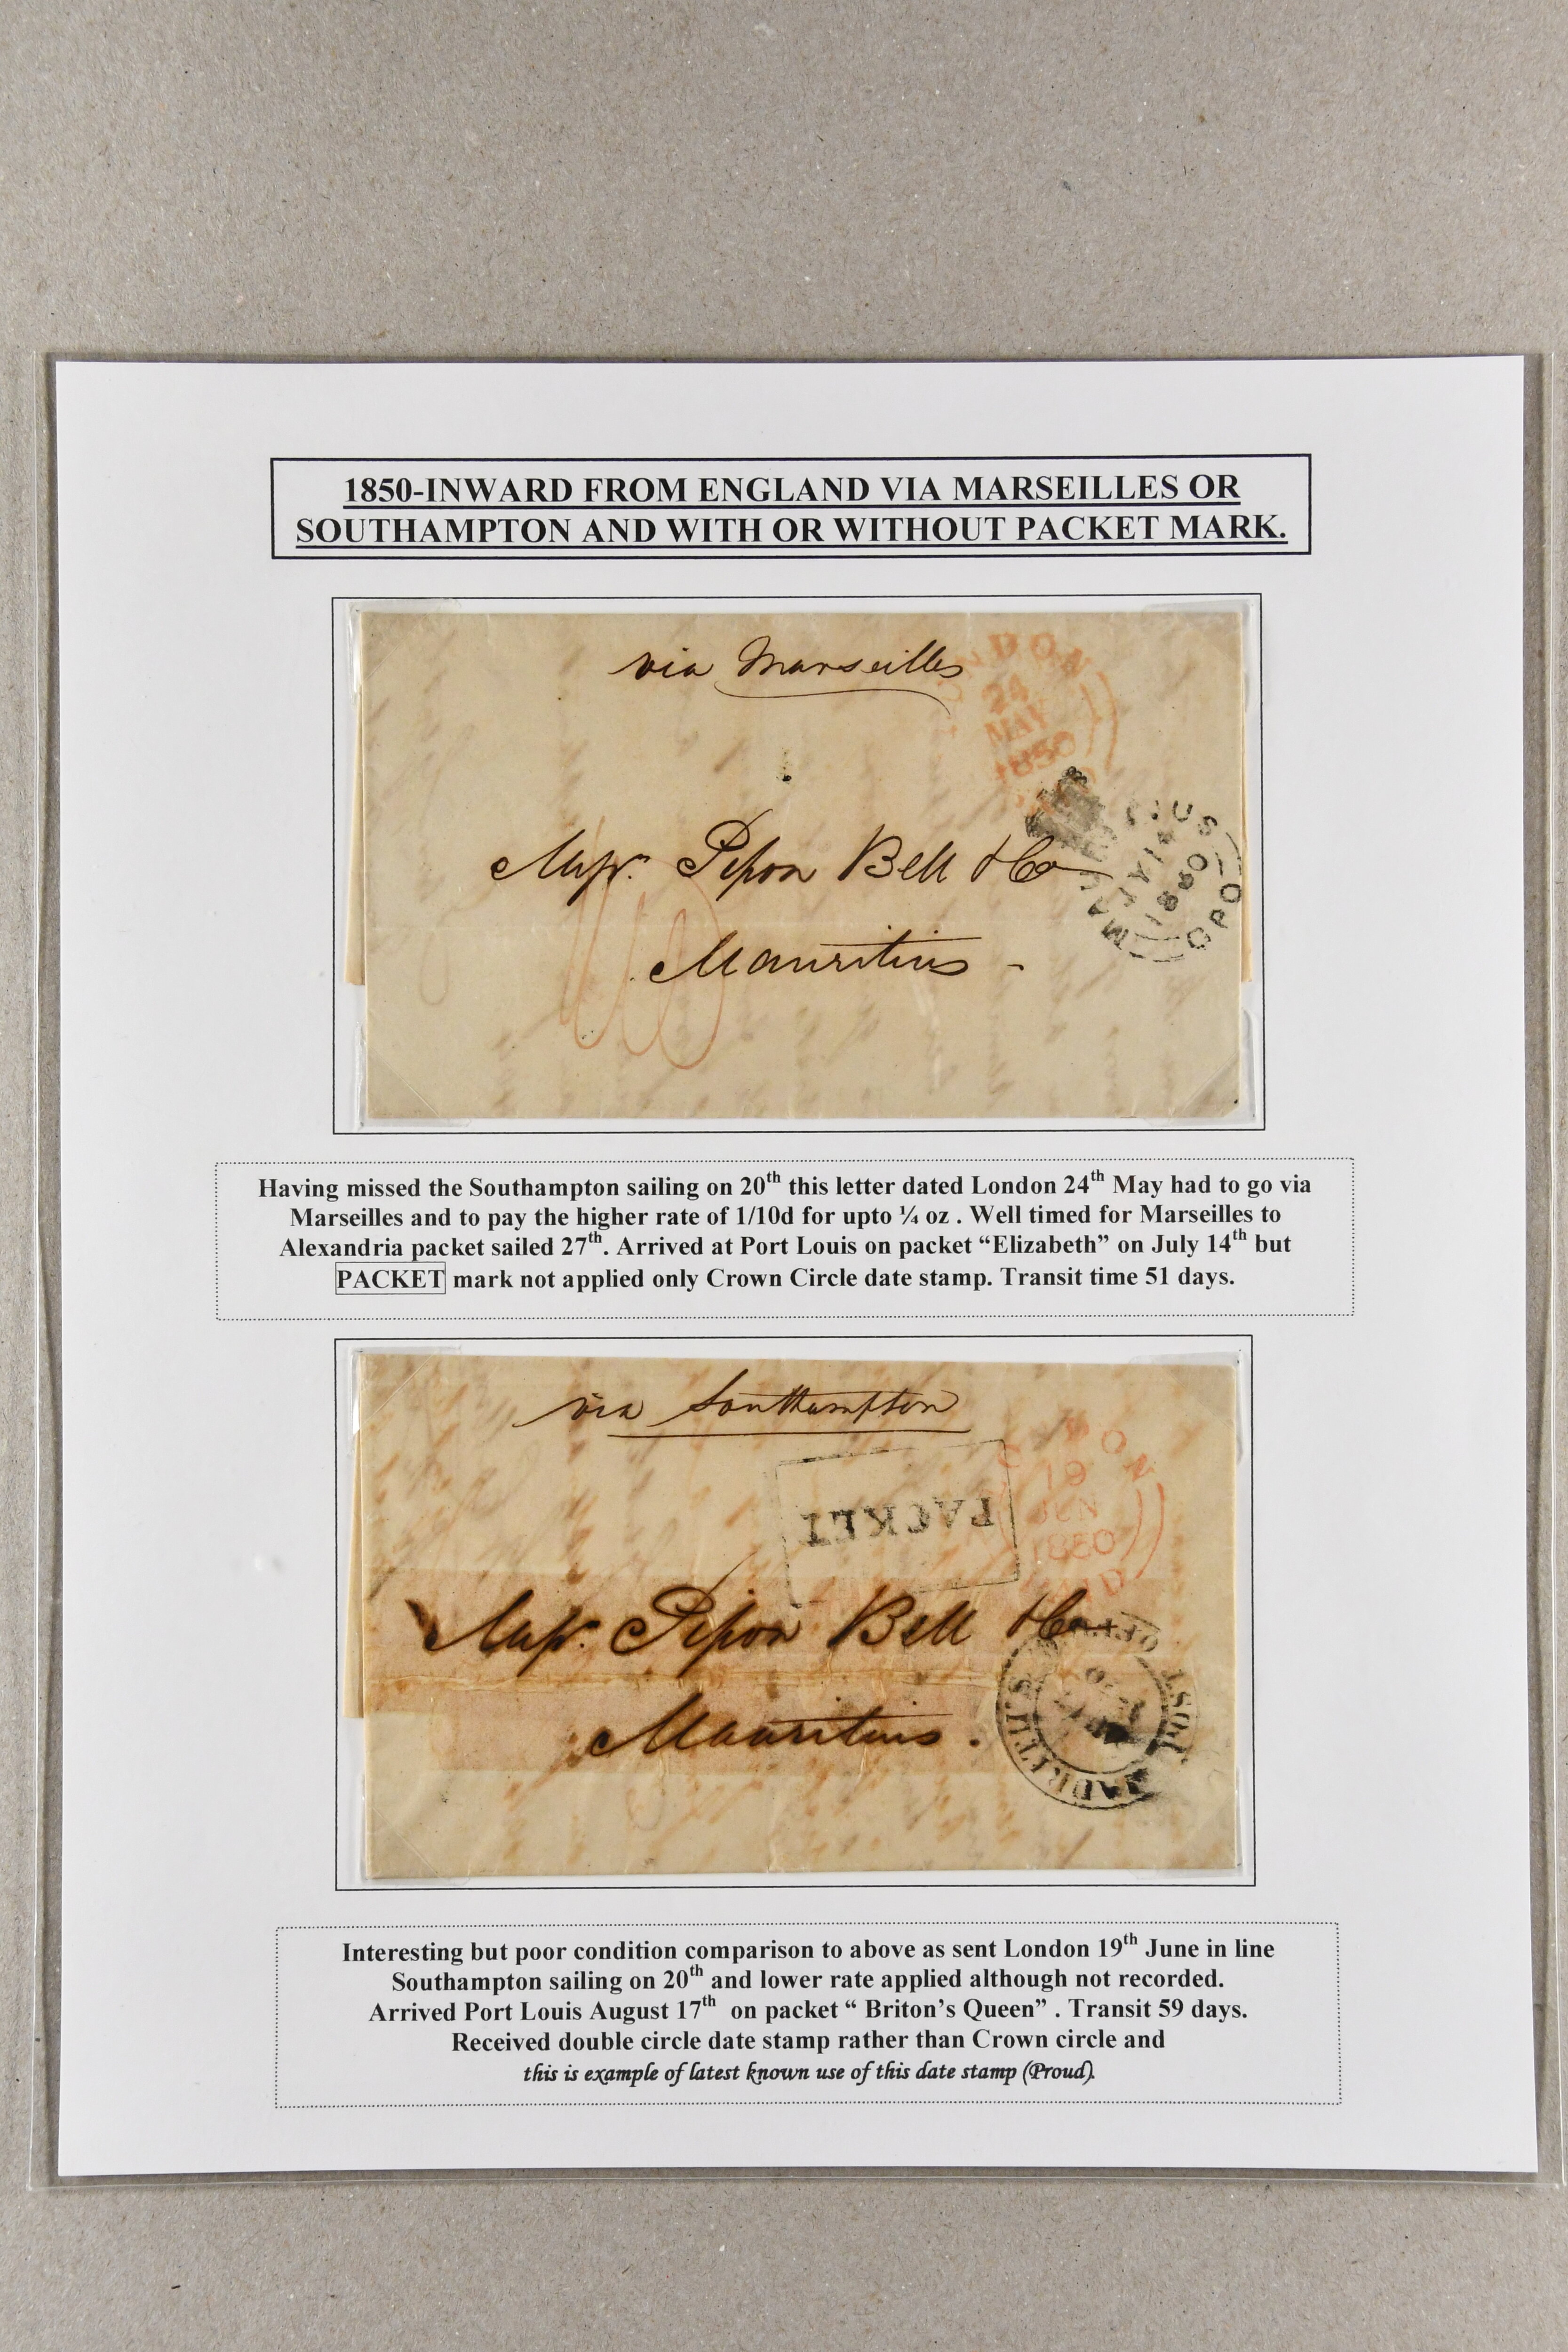 1850-INWARD FROM ENGLAND VIA MARSEILLES OR
SOUTHAMPTON AND WITH OR WITHOUT PACKET MARK.
via Marseilles
LONDON
24
MAY
1850
MAURITIUS
JY 14
1850
GPO
Messrs. Pipon Bell & Co
Mauritius -
Having missed the Southampton sailing on 20th this letter dated London 24th May had to go via
Marseilles and to pay the higher rate of 1/10d for upto ¼ oz . Well timed for Marseilles to
Alexandria packet sailed 27th. Arrived at Port Louis on packet “Elizabeth” on July 14th but
PACKET mark not applied only Crown Circle date stamp. Transit time 51 days.
via Southampton
PACKET
LONDON
19
JUN
1850
PAID
Messrs. Pipon Bell & Co
Mauritius.
MAURITIUS POST OFFICE
Interesting but poor condition comparison to above as sent London 19th June in line
Southampton sailing on 20th and lower rate applied although not recorded.
Arrived Port Louis August 17th on packet “ Briton’s Queen” . Transit 59 days.
Received double circle date stamp rather than Crown circle and
this is example of latest known use of this date stamp (Proud).